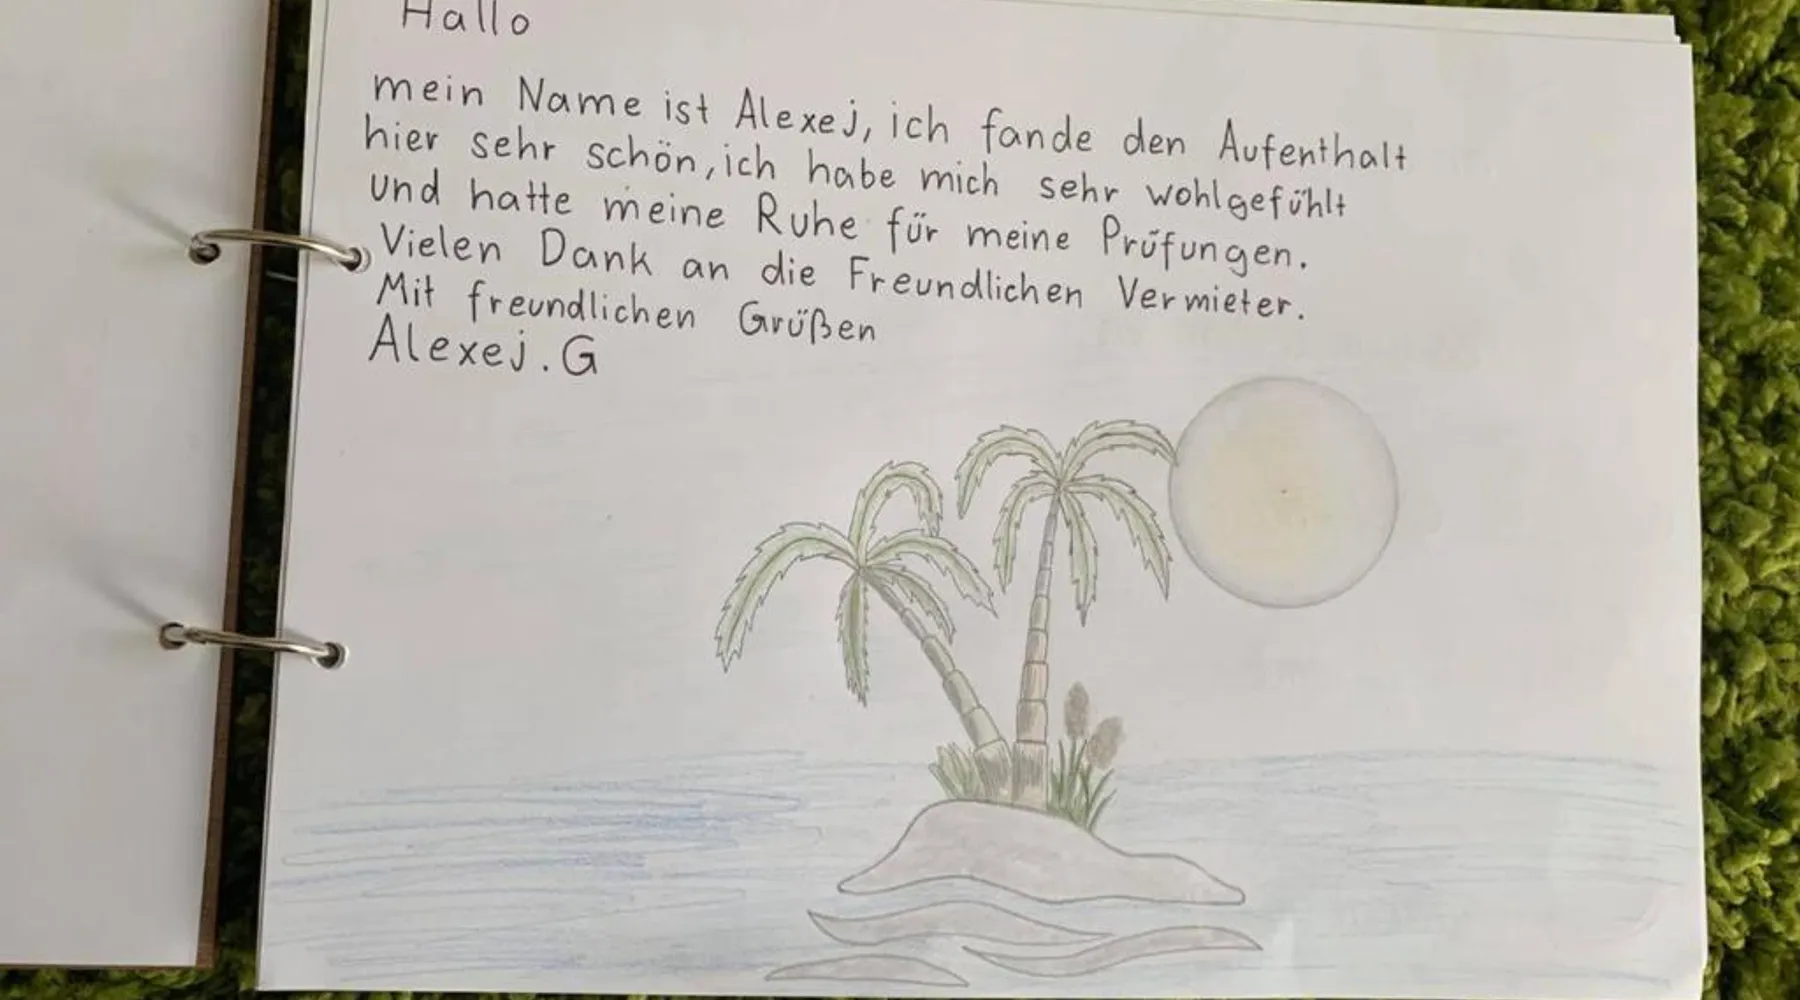 Hallo
mein Name ist Alexej, ich fande den Aufenthalt
hier sehr schön, ich habe mich sehr wohlgefühlt
und hatte meine Ruhe für meine Prüfungen.
Vielen Dank an die Freundlichen Vermieter.
Mit freundlichen Grüßen
Alexej. G